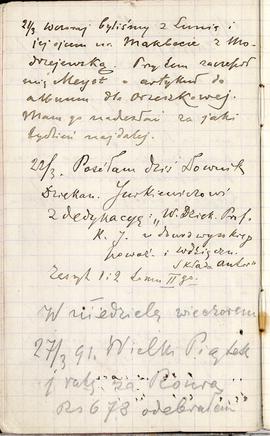 21/3 wczoraj byliśmy z Lunią i
jej ojcem na Makbecie z Mo-
drzejewską. Przytem zaczepił
mię Meyet o artykuł do
albumu dla Orzeszkowej.
Mam go nadesłać za jaki
tydzień najdalej.
22/3. Posłałem dziś Słownik
Dziekan. Jurkiewiczowi
z dedykacyą: „W. Dziek. Prof.
K. J. w dowód wysokiego
poważ. i wdzięczn.
składa autor"
Zeszyt 1 i 2 tomu II go.
W niedzielę wieczorem
27/3 91. Wielki Piątek
ratę za
Rs 678 odebrałem